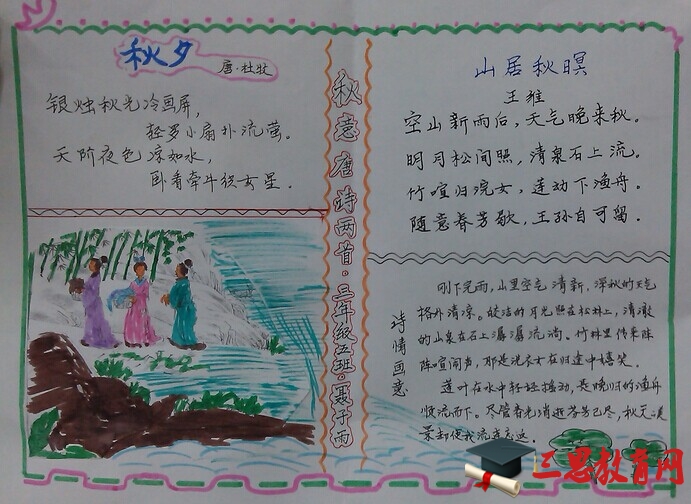 秋夕
唐·杜牧
银烛秋光冷画屏，
轻罗小扇扑流萤。
天阶夜色凉如水，
卧看牵牛织女星．
秋意唐诗两首·三年级五班·聂子雨
山居秋暝
王维
空山新雨后，天气晚来秋．
明月松间照，清泉石上流．
竹喧归浣女，莲动下渔舟．
随意春芳歇，王孙自可留．
诗情画意
刚下完雨，山里空气清新，深秋的天气
格外清凉。皎洁的月光照在松林上，清澈
的山泉在石上潺潺流淌。竹林里传来阵
阵喧闹声，那是洗衣女在归途中嬉笑．
莲叶在水中轻轻摇动，是晚归的渔舟
顺流而下。尽管春光消逝芳芳已尽，秋天的美
景却使我流连忘返．
三思教育网